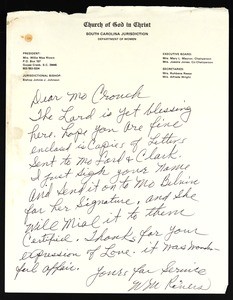 Church of God in Christ
SOUTH CAROLINA JURISDICTION
DEPARTMENT OF WOMEN
PRESIDENT
Mrs. Willie Mae Rivers
P.O. Box
Goose Creek, S.C.
JURISDICTIONAL BISHOP
Bishop Johnnie J. Johnson
EXECUTIVE BOARD:
Mrs. Mary L.
Mrs. Juanita Jones, Co-Chairperson
SECRETARIES
Mrs. Ruthlene Reese
Mrs. Alfreda Wright
Dear Mo Crouch
The Lord is yet blessing
here. hope you are fine
enclose is Copies of Letters
Sent to Mo Ford & Clark.
I just sign your Name
and Send it on to Mo
for her Signature, and She
Will Mail it to them
Certified. Thanks for your
expression of Love. it was wonder-
ful affair.
Yours for Service
WM Rivers